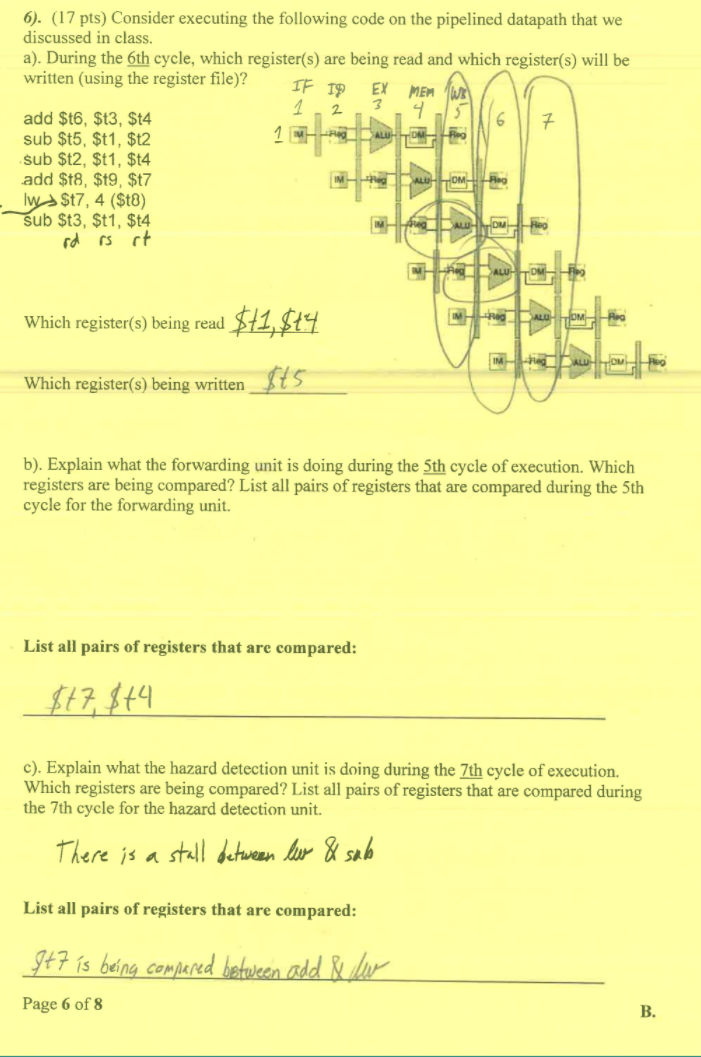 6). (17 pts) Consider executing the following code on the pipelined datapath that we
discussed in class.
a). During the 6th cycle, which register(s) are being read and which register(s) will be
written (using the register file)?
IF ID EX MEM WB
1 2 3 4 5 6 7
add $t6, $t3, $t4
sub $t5, $t1, $t2
sub $t2, $t1, $t4
add $t8, $t9, $t7
lw $t7, 4 ($t8)
sub $t3, $t1, $t4
rd rs rt
1 IM Reg ALU DM Reg
IM Reg ALU DM Reg
IM Reg ALU DM Reg
IM Reg ALU DM Reg
IM Reg ALU DM Reg
IM Reg ALU DM Reg
Which register(s) being read $t1, $t4
Which register(s) being written $t5
b). Explain what the forwarding unit is doing during the 5th cycle of execution. Which
registers are being compared? List all pairs of registers that are compared during the 5th
cycle for the forwarding unit.
List all pairs of registers that are compared:
$t7, $t4
c). Explain what the hazard detection unit is doing during the 7th cycle of execution.
Which registers are being compared? List all pairs of registers that are compared during
the 7th cycle for the hazard detection unit.
There is a stall between lw & sub
List all pairs of registers that are compared:
$t7 is being compared between add & lw
Page 6 of 8
B.